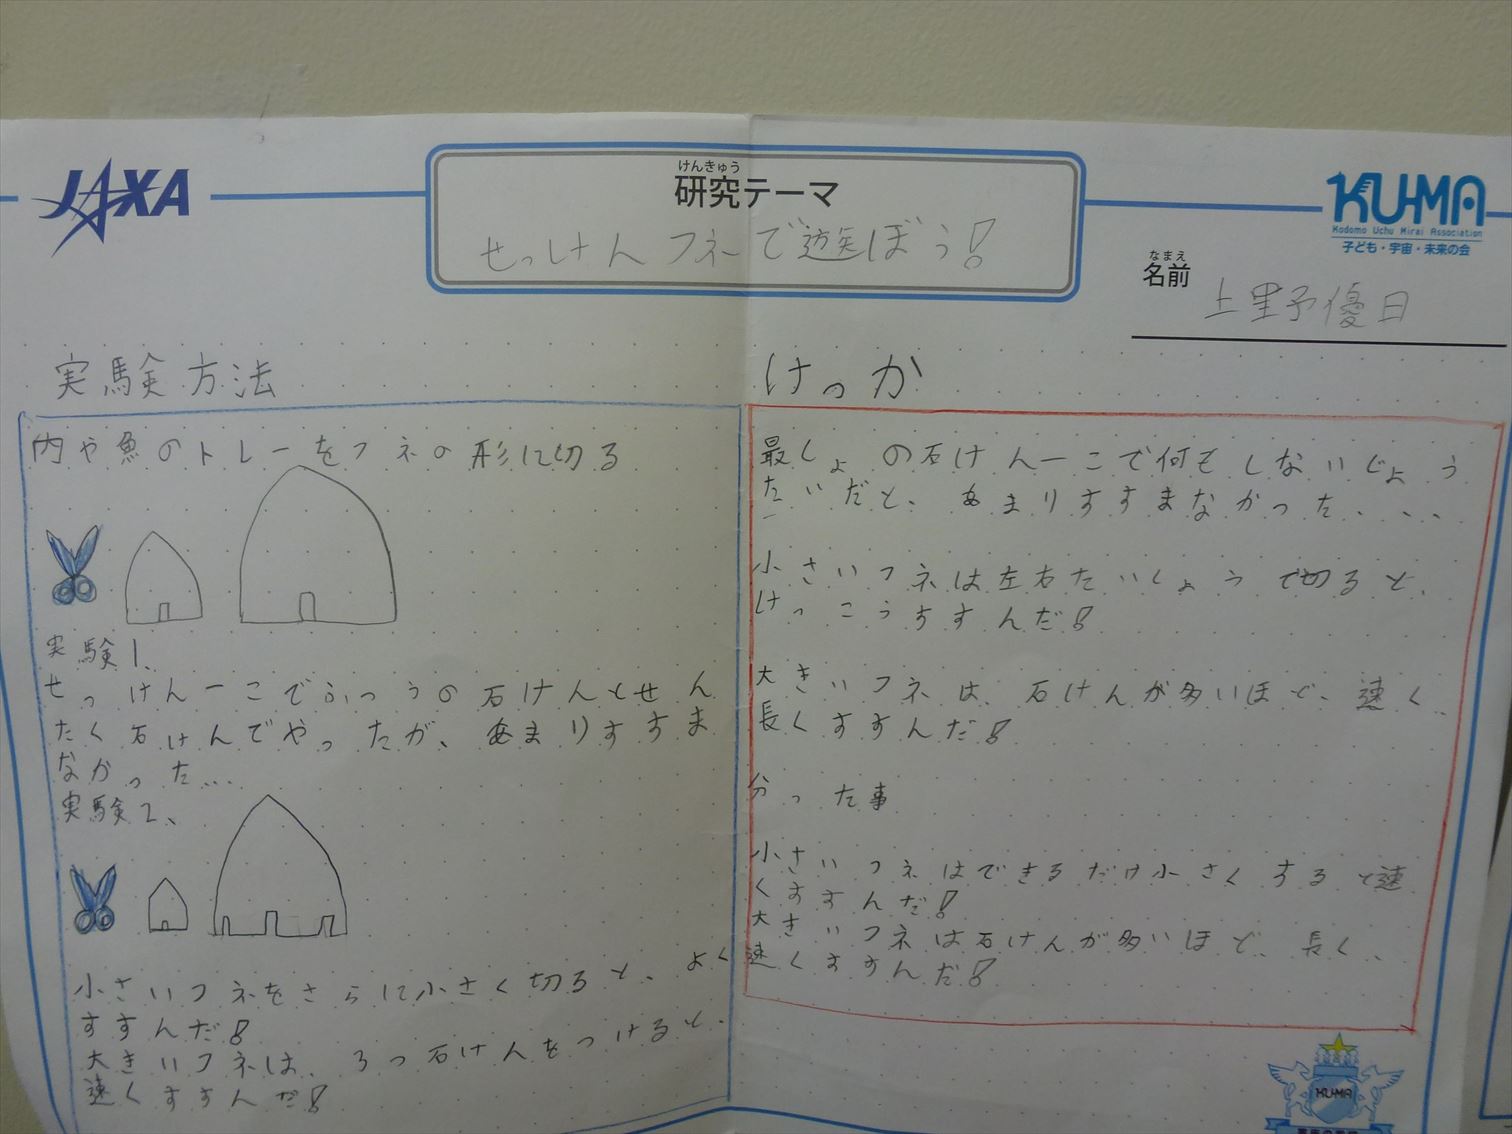 JAXA
けんきゅう
研究テーマ
せっけんフネで遊ぼう!
KU-MA
Kodomo Uchu Mirai Association
子ども・宇宙・未来の会
なまえ
名前
上里予優日
実験方法
内や魚のトレーをフネの形に切る
実験1、
せっけん一こでふつうの石けんとせん
たく石けんでやったが、あまりすすま
なかった…
実験2、
小さいフネをさらに小さく切ると、よく
すすんだ!
大きいフネは、3つ石けんをつけると、
速くすすんだ!
けっか
最しょの石けん一こで何もしないじょう
たいだと、あまりすすまなかった、、、
小さいフネは左右たいしょうで切ると、
けっこうすすんだ!
大きいフネは、石けんが多いほど、速く、
長くすすんだ!
分った事
小さいフネはできるだけ小さくすると速
くすすんだ!
大きいフネは石けんが多いほど、長く、
速くすすんだ!
KU-MA